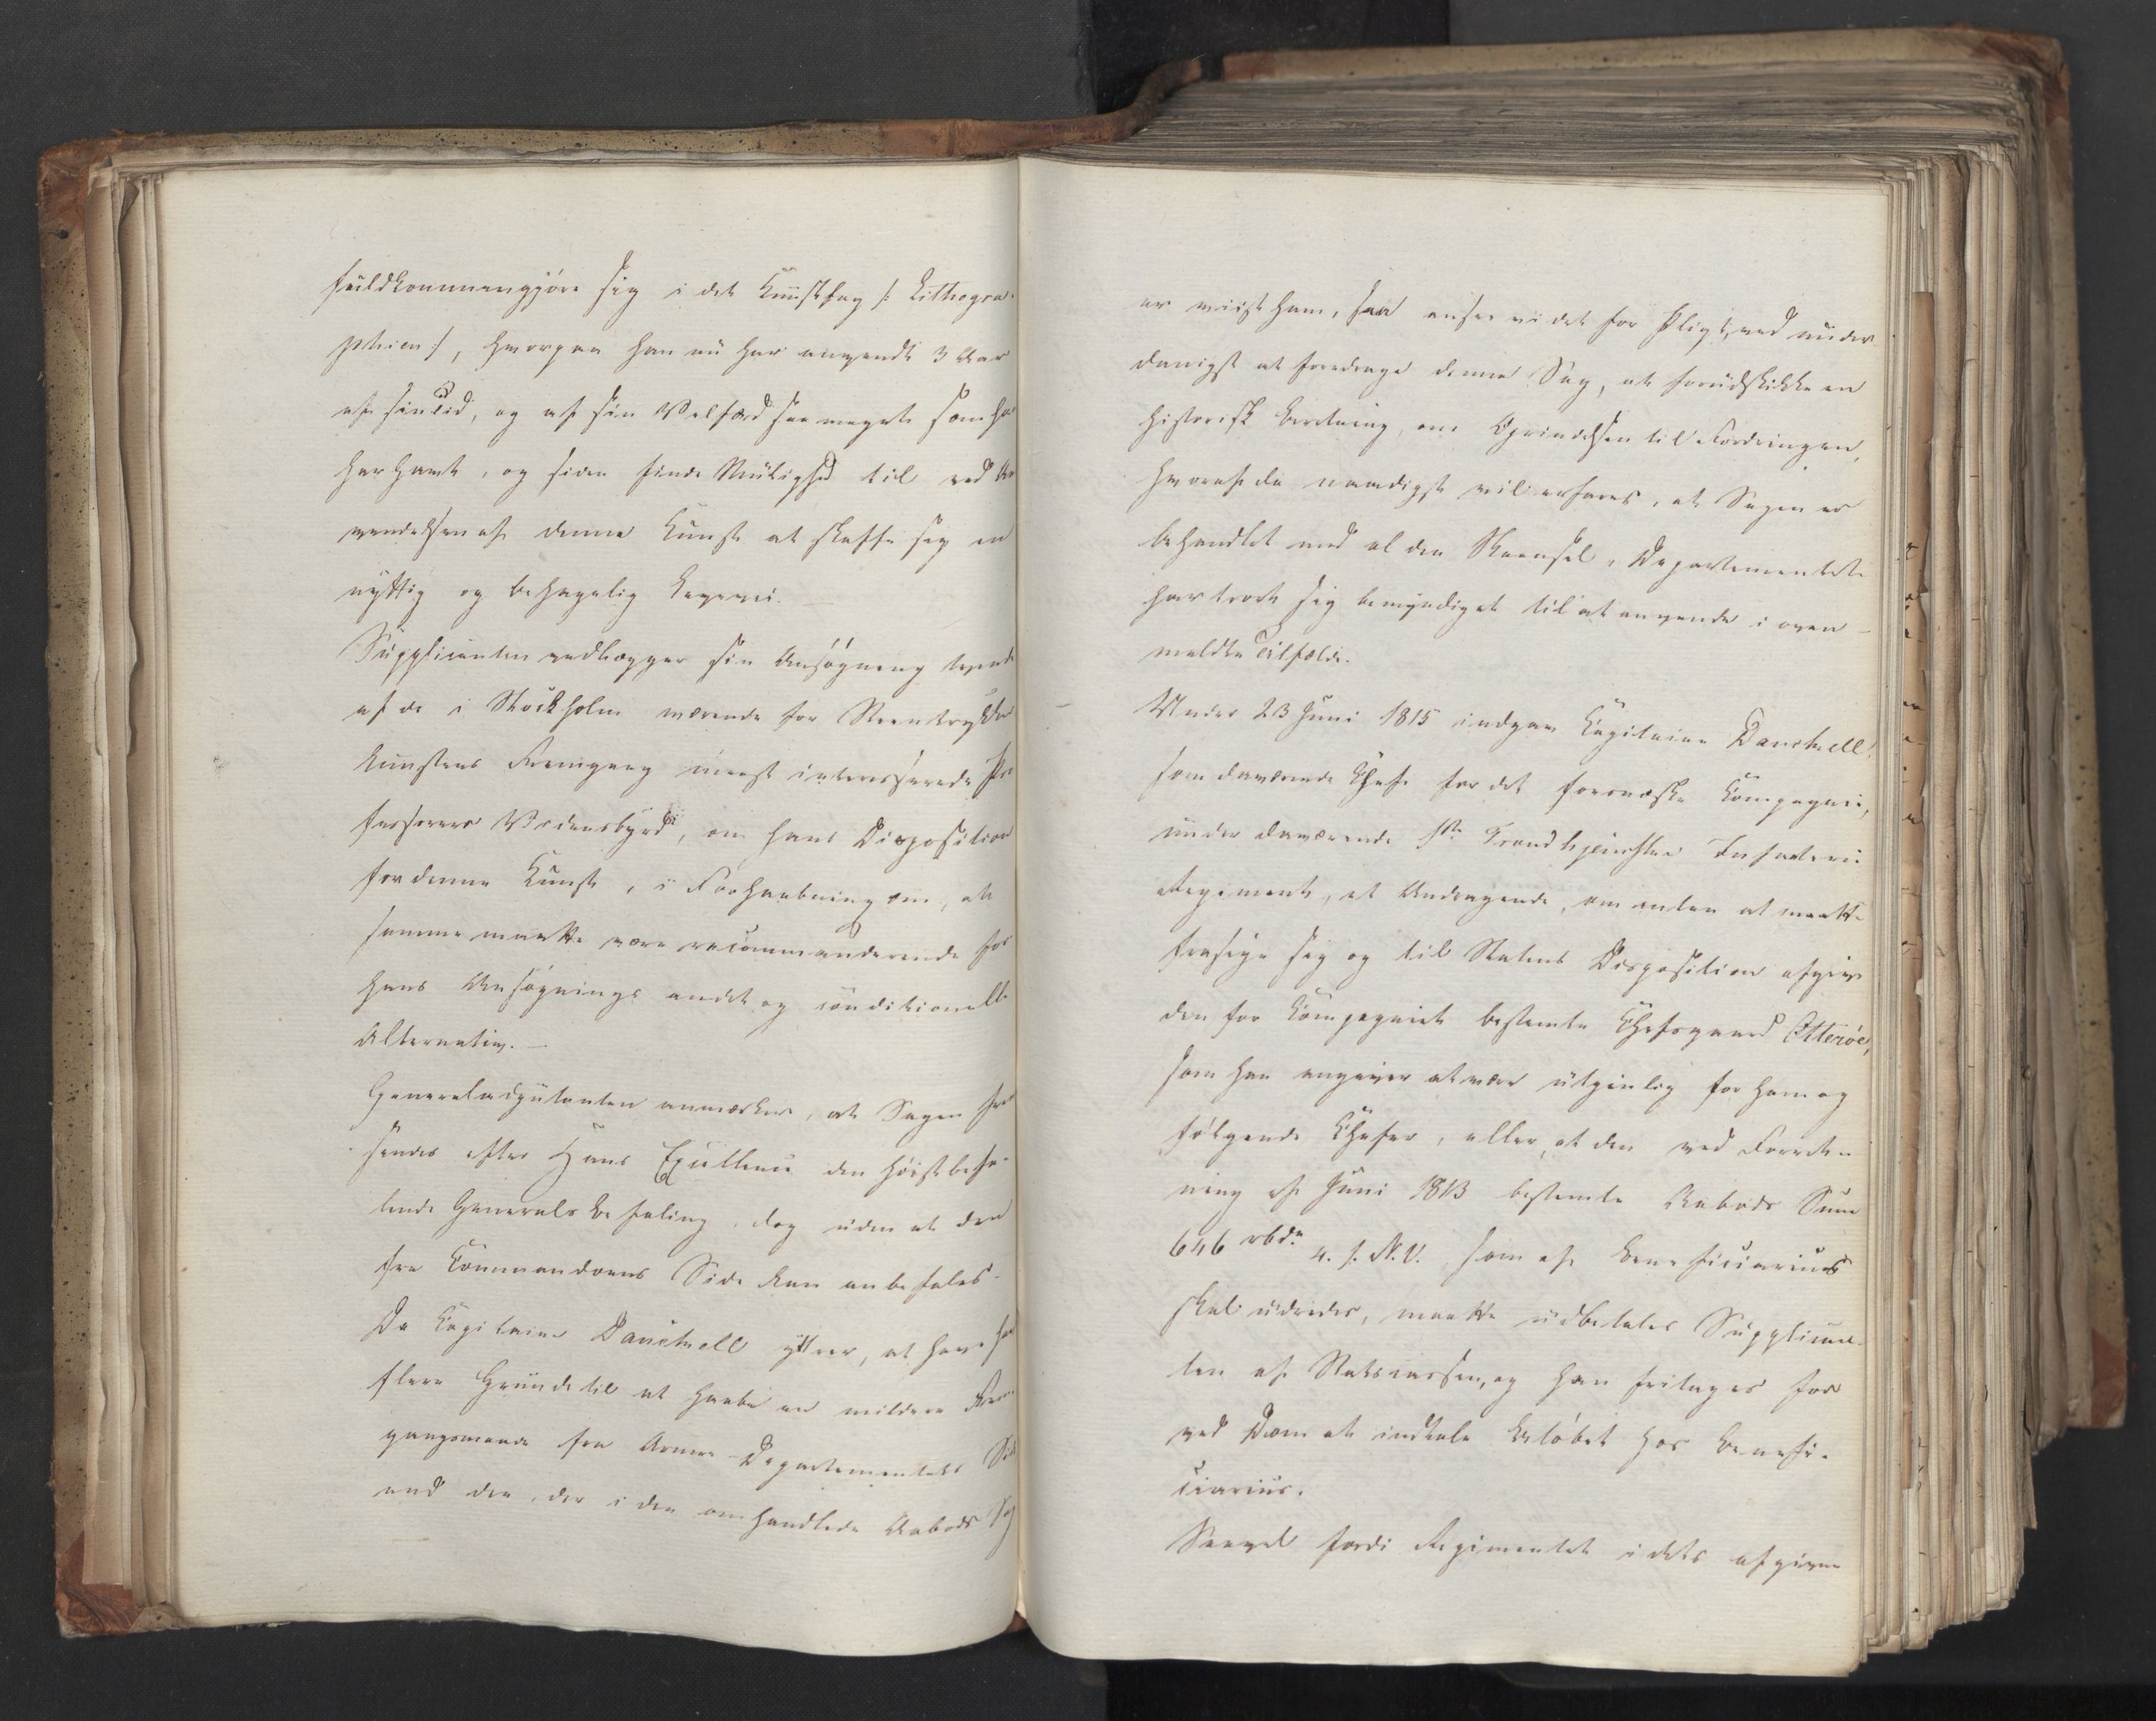 fuldkommengjøre sig i det Kunstfag /: Lithogra-
phien :/, hvorpaa han nu har anvendt 3 Aar
af sin Tid, og af sin Velfærd saa meget som han
har havt, og siden finde Mulighed til ved An
vendelsen af denne Kunst at skaffe sig en
nyttig og behagelig Levevei. —
Supplicanten vedlægger sin Ansøgning
af de i Stockholm værende for Steentrykker
kunstens Fremgang meest interesserede Pro
fessorers Vidensbyrd, om hans Disposition
for denne Kunst, i Forhaabning om, at
samme maatte være recommanderende for
hans Ansøgnings andet og conditionelle
Alternativ. —
Generaladjutanten anmærker, at Sagen frem
sendes efter Hans Excellence den høistbefa-
lende Generals Befaling, dog uden at den
fra Commandoens Side kan anbefales.
Da Capitaine Danchell yttrer, at have havt
flere Grunde til at haabe en mildere Frem
gangsmaade fra Armee-Departementets Side
end den, der i den omhandlede Aabods Sag
er viist ham, saa ansee vi det for Pligt, ved under
danigst at foredrage denne Sag, at forudskikke en
historisk Beretning, om Oprindelsen til Fordringen,
hvoraf da naadigst vil erfares, at Sagen er
behandlet med al den Skaansel, Departementet
har troet sig bemyndiget til at anvende i oven-
meldte Tilfælde.
Under 23 Juni 1815 indgav Capitaine Danchell,
som daværende Chef for det foersnæske Compagnie,
under daværende 1ste Trondhjemske Infanterie
Regiment, et Andragende, om enten at maatte
frasige sig og til Statens Disposition afgive
den for Compagniet bestemte Chefsgaard Otterøe,
som han angiver at være utjenlig for ham og
følgende Chefer, eller, at den ved Forret-
ning af Juni 1813 bestemte Aabods Sum
646 rbdr 4. s. N.V. som af Beneficiarius
skal udredes, maatte udbetales Supplican-
ten af Statscassen, og han fritages for
ved Dom at indtale Beløbet hos Benefi-
ciarius.
Saavel fordi Regimentet i dets afgivne